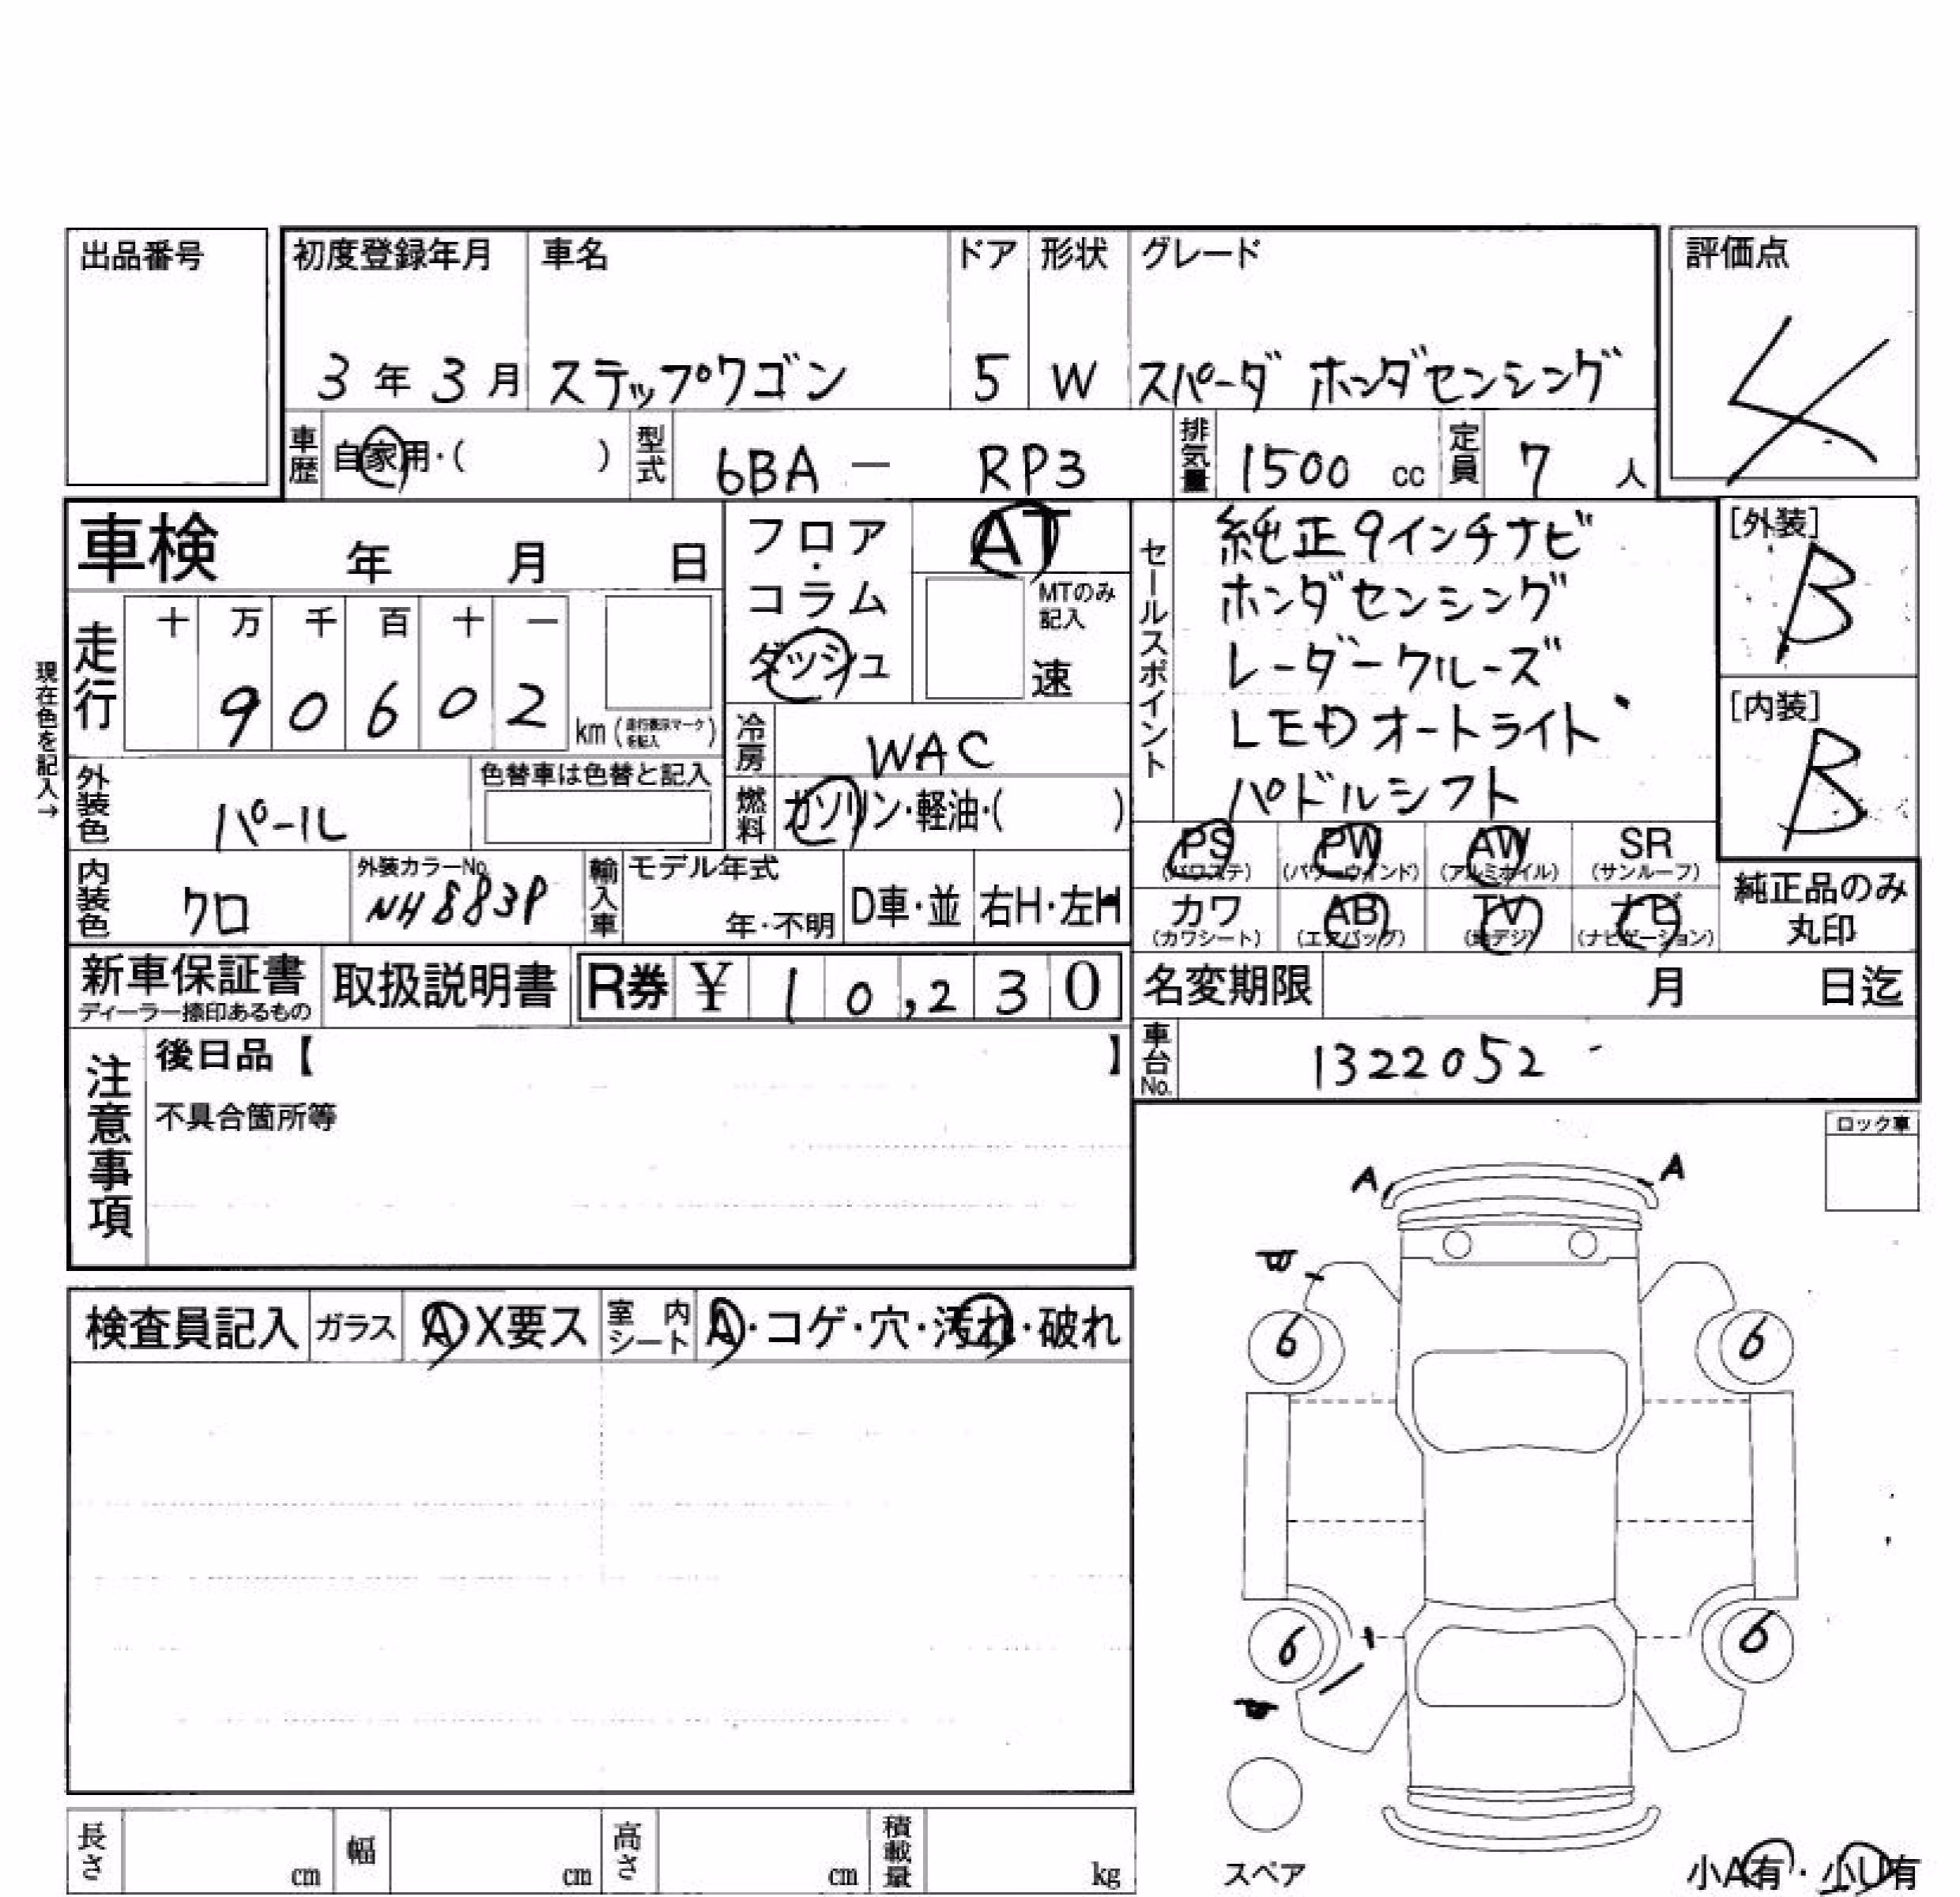 出品番号
初度登録年月 車名 ドア 形状 グレード
3年3月 ステップワゴン 5 W スパーダ ホンダセンシング
評価点
4
車歴 自家用・( ) 型式 6BA － RP3 排気量 1500 cc 定員 7 人
車検 年 月 日
フロア・コラム
ダッシュ
AT
MTのみ記入
速
セールスポイント
純正9インチナビ
ホンダセンシング
レーダークルーズ
LEDオートライト
パドルシフト
[外装]
B
[内装]
B
現在色を記入→
走行 十 万 千 百 十 一
9 0 6 0 2
km (走行表示マークを記入)
冷房 WAC
燃料 ガソリン・軽油・( )
外装色 パール
色替車は色替と記入
内装色 クロ
外装カラーNo. NH883P
輸入車 モデル年式
年・不明 D車・並 右H・左H
PS (パワステ) PW (パワーウインド) AW (アルミホイル) SR (サンルーフ)
カワ (カワシート) AB (エアバッグ) TV (地デジ) ナビ (ナビゲーション)
純正品のみ
丸印
新車保証書
ディーラー捺印あるもの
取扱説明書 R券 ¥ 10,230
名変期限 月 日迄
車台No. 1322052
注意事項
後日品【 】
不具合箇所等
ロック車
A A
6 6
6 6
スペア
小A有・小U有
検査員記入 ガラス A・X要ス 室内シート A・コゲ・穴・汚れ・破れ
長さ cm 幅 cm 高さ cm 積載量 kg